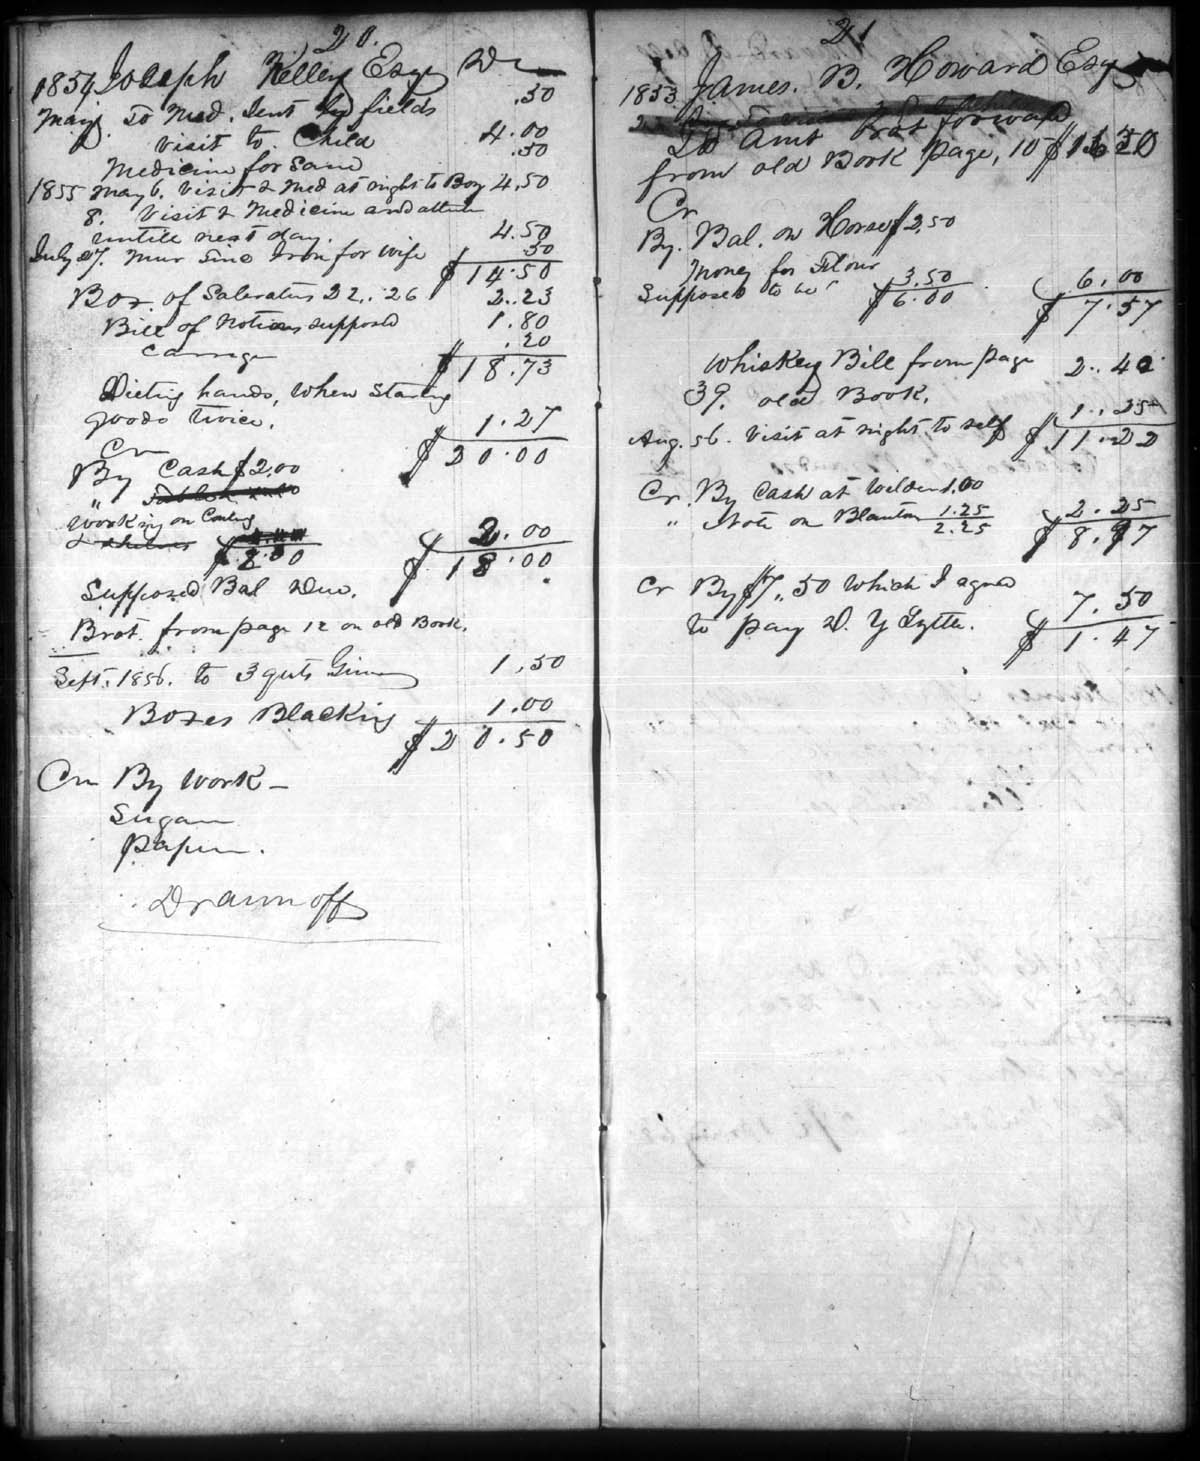 20.
1854 Joseph Kelley Esqr Dr
May To Med. Sent by fields .50
Visit to Child 4.00
Medicine for Same .50
1855 May 6. Visit & Med at night to Boy 4.50
8. Visit & Medicine and attend
untill next day. 4.50
July 27. Mur Tinc Iron for Wife 50
$14.50
Box of Saleratus 22,. 26 2..23
Bill of Notions supposed 1.80
Carriage .20
$18.73
Dieting hands, When Starting
goods twice. 1.27
$20.00
Cr
By Cash $2.00
"
Working on
& shelves $2.00 2.00
$18.00
Supposed Bal Due.
Brot. from page 12 on old Book.
Sept. 1856. to 3 quts 1.50
Boxes Blacking 1.00
$20.50
Cr By Work –
Sugar
paper.
Drawn off
21
1853 James. B. Howard Esq
To Amt Brot forward
from old Book page, 10
Cr
By. Bal. on Horse $2.50
Money for Flour
Supposed to be 3.50 6.00
$6.00 $7.57
Whiskey Bill from page 2.40
39. old Book.
Aug. 56. Visit at night to self 1.25
$11.22
Cr. By Cash at Wilder 1.00
" Note on Blanton 1.25 2.25
2.25 $8.97
Cr By $7.50 Which I agree
to pay D. Y Lytte. 7.50
$1.47